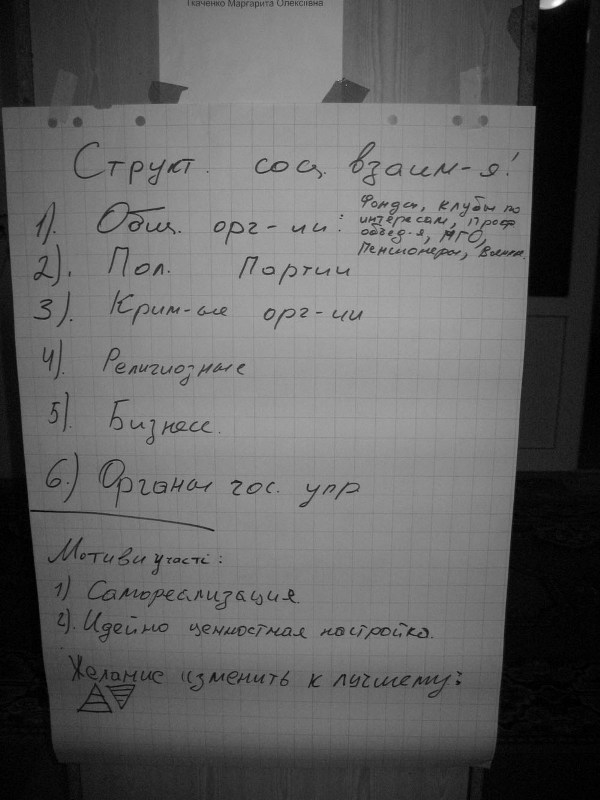 Ткаченко Маргарита Олексіївна
Структ. соц. взаим-я!
1). Общ. орг-ии: Фонды, клубы по
интересам, проф
объед-я, НГО,
Пенсионеры,
2). Пол. Партии
3). Крим-ые орг-ии
4). Религиозные
5). Бизнесс.
6.) Органы гос. упр
Мотиви участі:
1) Самореализация.
2). Идейно ценностная настройка.
Желание изменить к лучшему: